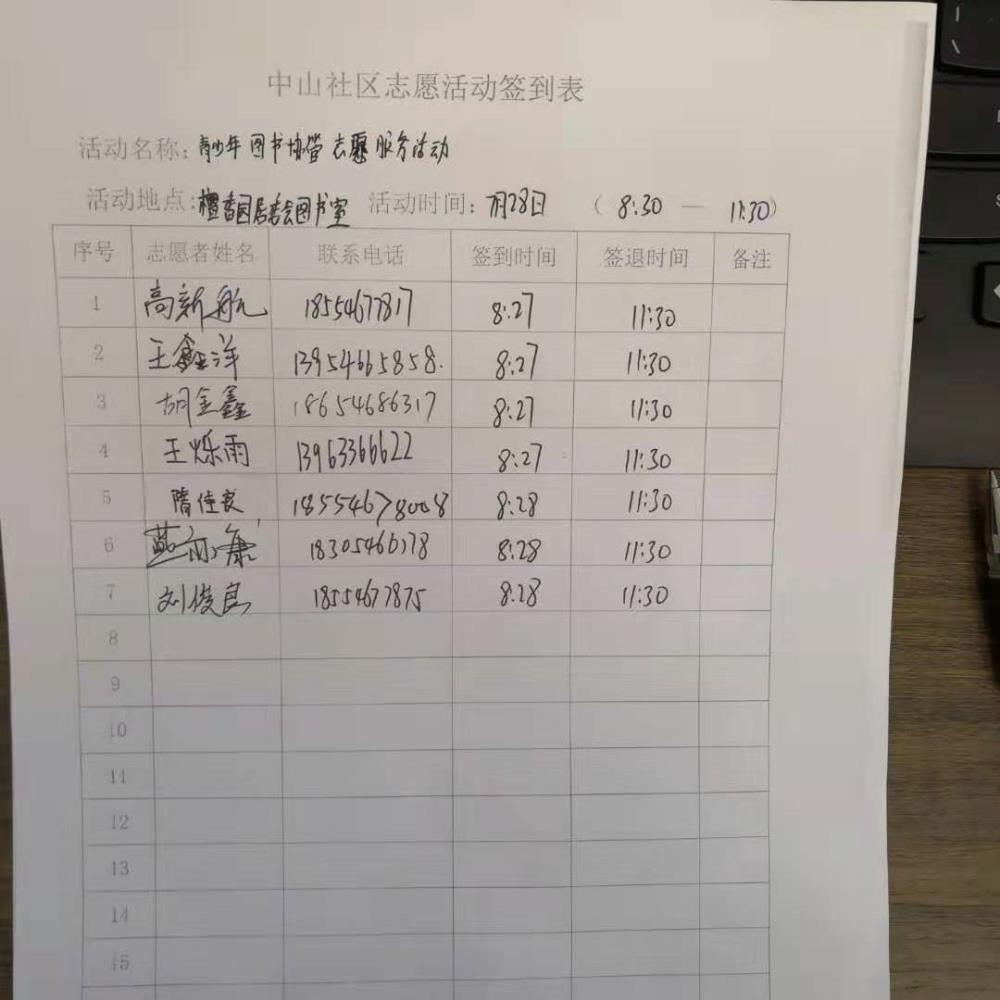 中山社区志愿活动签到表
活动名称: 青少年图书协管志愿服务活动
活动地点: 檀香园居委会图书室 活动时间: 7月28日 (8:30 — 11:30)
序号 志愿者姓名 联系电话 签到时间 签退时间 备注
1 高新航 18554677817 8:27 11:30
2 王鑫洋 13954665858. 8:27 11:30
3 胡金鑫 18654686317 8:27 11:30
4 王烁雨 13963366622 8:27 11:30
5 隋佳良 18554678008 8:28 11:30
6 8:28 11:30
7 刘俊良 18554677875 8:28 11:30
8
9
10
11
12
13
14
15